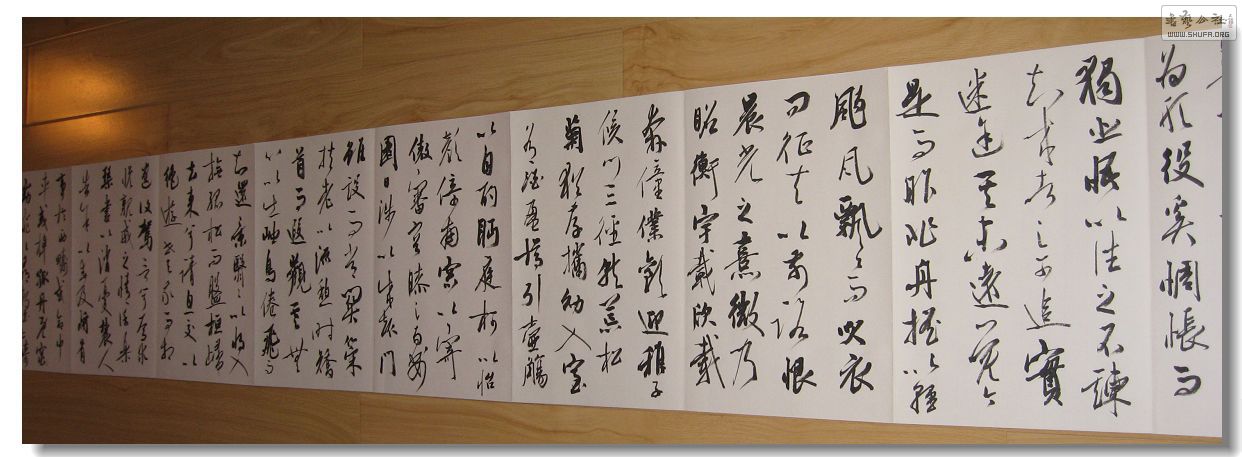 書艺公社
WWW.SHUFA.ORG
為形役奚惆悵而
獨悲悟以往之不諫
知來者之可追實
迷途其未遠覺今
是而昨非舟搖以輕
颺風飄飄而吹衣
問征夫以前路恨
晨光之熹微乃
瞻衡宇載欣載
奔僮僕歡迎稚子
候門三徑就荒松
菊猶存攜幼入室
有酒盈樽引壺觴
以自酌眄庭柯以怡
顏倚南窗以寄
傲審容膝之易安
園日涉以成趣門
雖設而常關策
扶老以流憩時矯
首而遐觀雲無
心以出岫鳥倦飛而
知還景翳翳以將入
撫孤松而盤桓歸
去來兮請息交以
絕遊世與我而相
遺復駕言兮焉求
悅親戚之情話樂
琴書以消憂農人
告余以春及將有
事於西疇或命巾
車或棹孤舟既窈